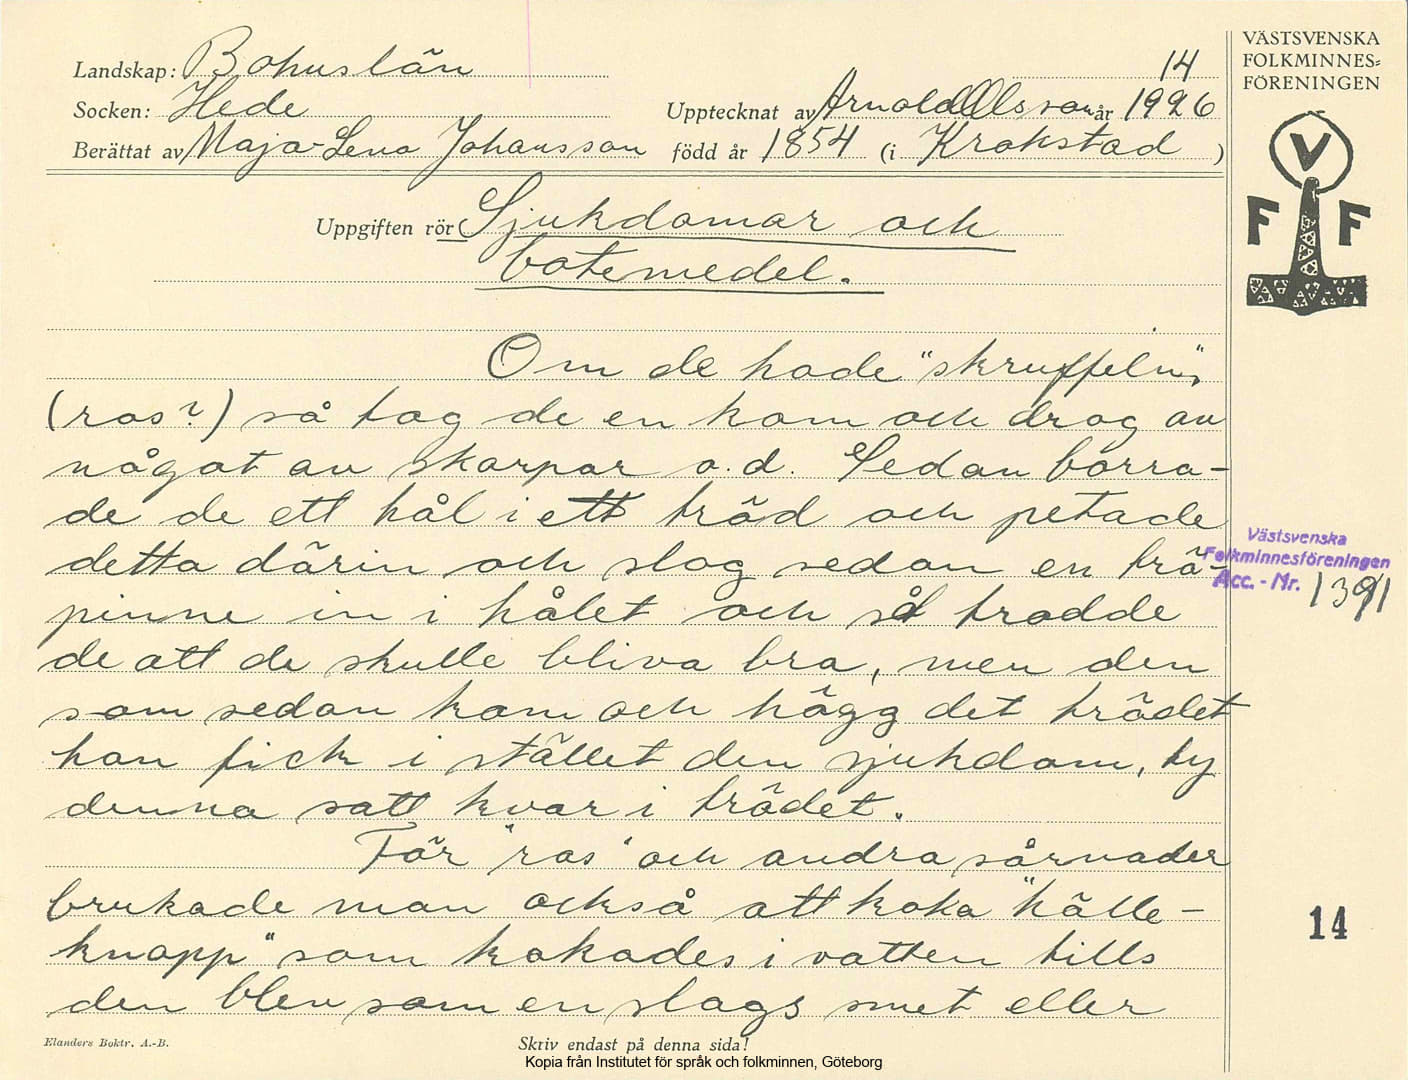 Landskap: Bohuslän
14
Socken: Hede
Upptecknat av Arnold Olsson år 1926
Berättat av Maja-Lena Johansson född år 1854 (i Krokstad)
Uppgiften rör Sjukdomar och
botemedel.
Om de hade "skruffeln"
(ros?) så tog de en kam och drog av
något av skorpar o.d. Sedan borra-
de de ett hål i ett träd och petade
detta därin och slog sedan en trä-
pinne in i hålet och så trodde
de att de skulle bliva bra, men den
som sedan kom och högg det trädet
han fick i stället den sjukdom, ty
denna satt kvar i trädet.
För "ros" och andra sårnader
brukade man också att koka "hälle-
knapp" som kokades i vatten tills
den blev som en slags smet eller
Elanders Boktr. A.-B.
Skriv endast på denna sida!
Kopia från Institutet för språk och folkminnen, Göteborg
VÄSTSVENSKA
FOLKMINNES-
FÖRENINGEN
V
F F
Västsvenska
Folkminnesföreningen
Acc. - Nr. 1391
14